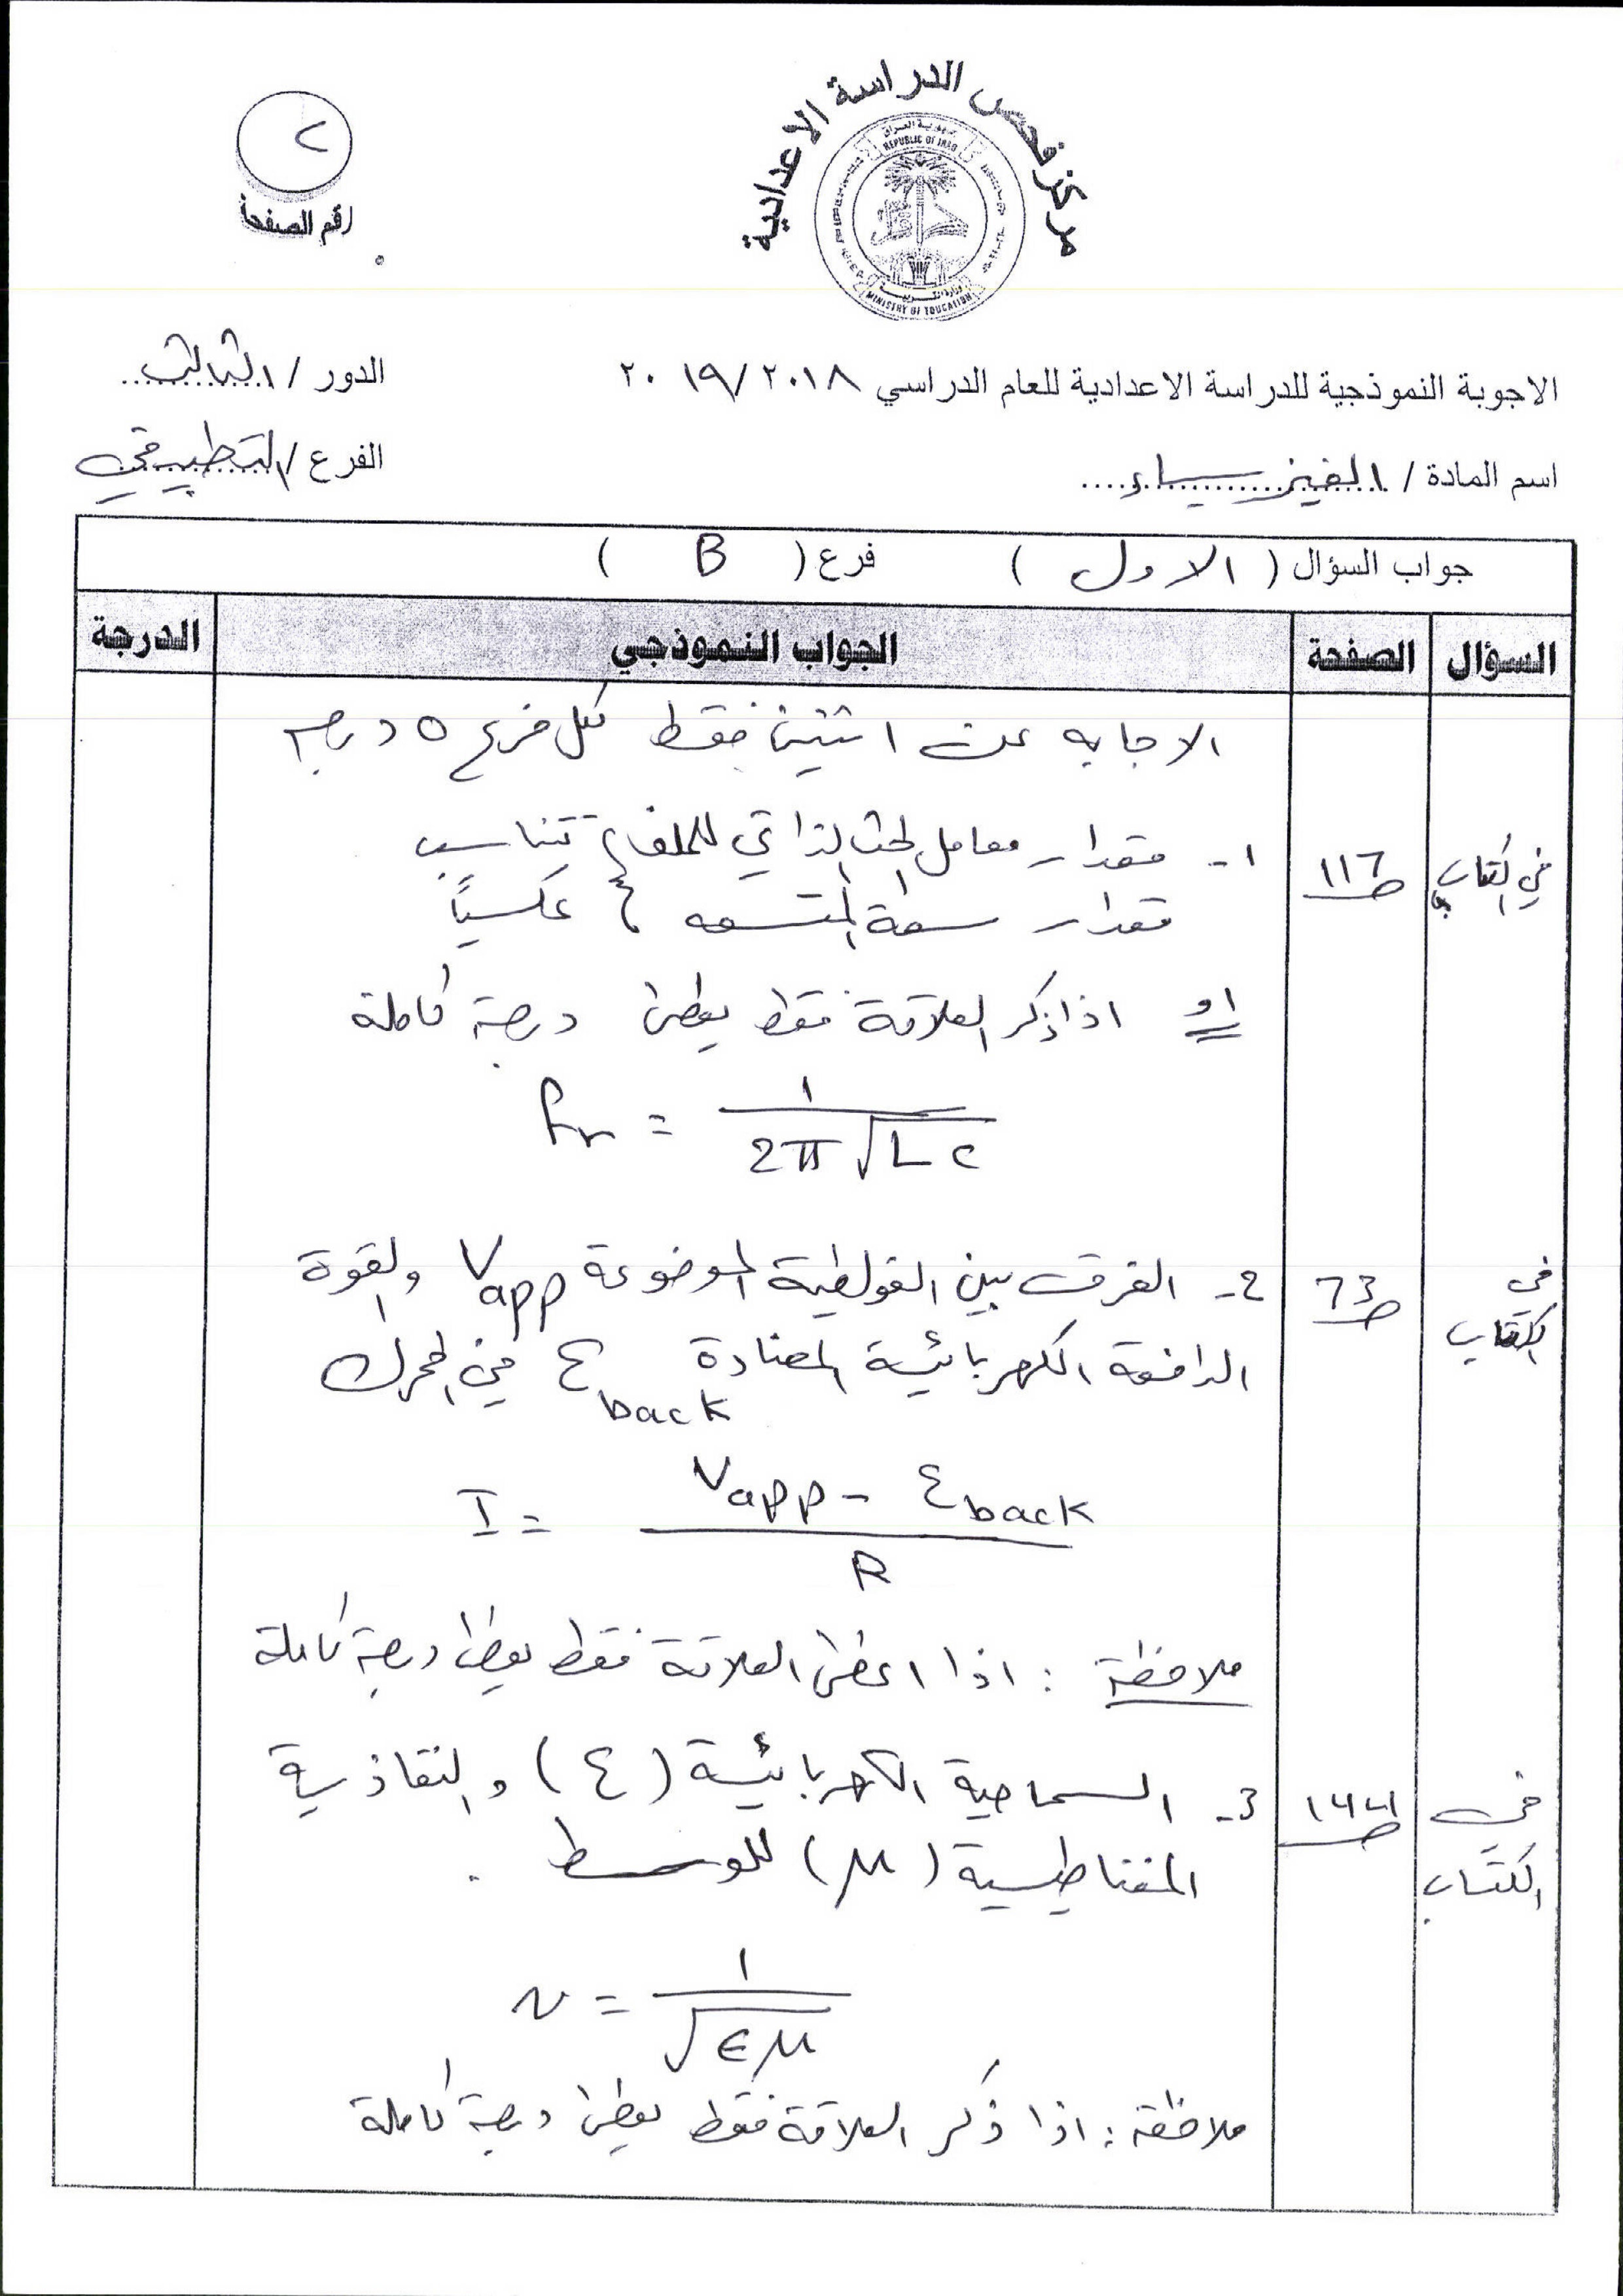 مركز فحص الدراسة الاعدادية
جمهورية العراق
REPUBLIC OF IRAQ
وزارة التربية
MINISTRY OF EDUCATION
٢
رقم الصفحة
الاجوبة النموذجية للدراسة الاعدادية للعام الدراسي ٢٠١٨/٢٠١٩
الدور / الثالث
اسم المادة / الفيزياء
الفرع / التطبيقي
جواب السؤال ( الاول ) فرع ( B )
السؤال الصفحة الجواب النموذجي الدرجة
الاجابه عن اثنين فقط لكل فرع ٥ درجه
في الكتاب ص ١١٦ ١- مقدار معامل الحث الذاتي للملف ، تتناسب
مقدار سعة المتسعه ، عكسياً
او اذا ذكر العلاقة فقط يعطى درجة كاملة
fr = 1 / 2π√LC
في الكتاب ص ٦٣ 2- الفرق بين الفولطية الموضوعة Vapp والقوة
الدافعة الكهربائية المضادة εback في المحرك
I = Vapp - εback / R
ملاحظة : اذا اعطى العلاقة فقط يعطى درجة كاملة
في الكتاب 3- السماحية الكهربائية (ε) والنفاذية
المغناطيسية (μ) للوسط .
v = 1 / √εμ
ملاحظة : اذا ذكر العلاقة فقط يعطى درجة كاملة